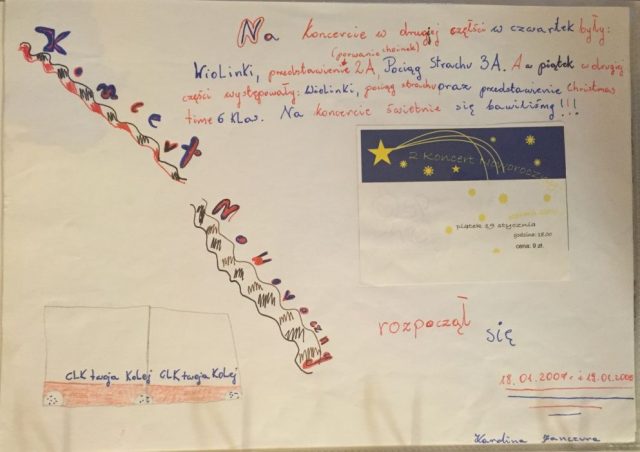 Koncert
Noworoczny
Na Koncercie w drugiej części w czwartek były:
(porwanie choinek)
Wiolinki, przedstawienie 2A, Pociąg Strachu 3A. A w piątek w drugiej
części występowały: Wiolinki, pociąg strachu oraz przedstawienie Christmas
time 6 klas. Na koncercie świetnie się bawiliśmy!!!
2 Koncert Noworoczny
piątek 19 stycznia
godzina: 18.00
cena: 9 zł.
rozpoczął się
CLK twoja Kolej CLK twoja Kolej
18.01.2007 i 19.01.200
Karolina